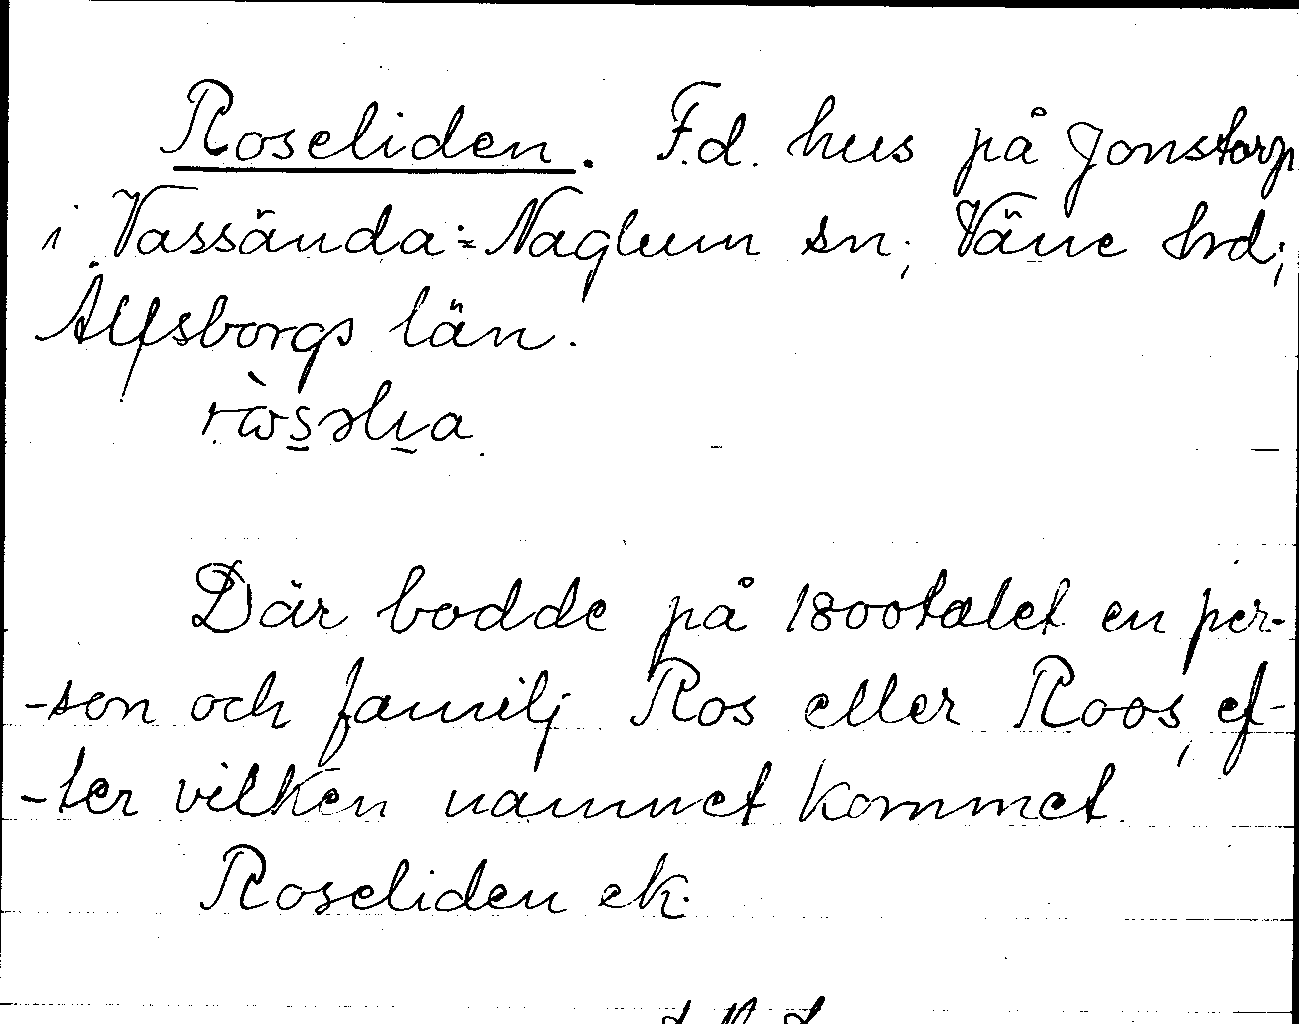 Roseliden. F.d. hus på Jonstorp
i Vassända-Naglum sn; Väne hd;
Älfsborgs län.
Där bodde på 1800talet en per-
-son och familj Ros eller Roos, ef-
-ter vilken namnet kommet.
Roseliden ek.